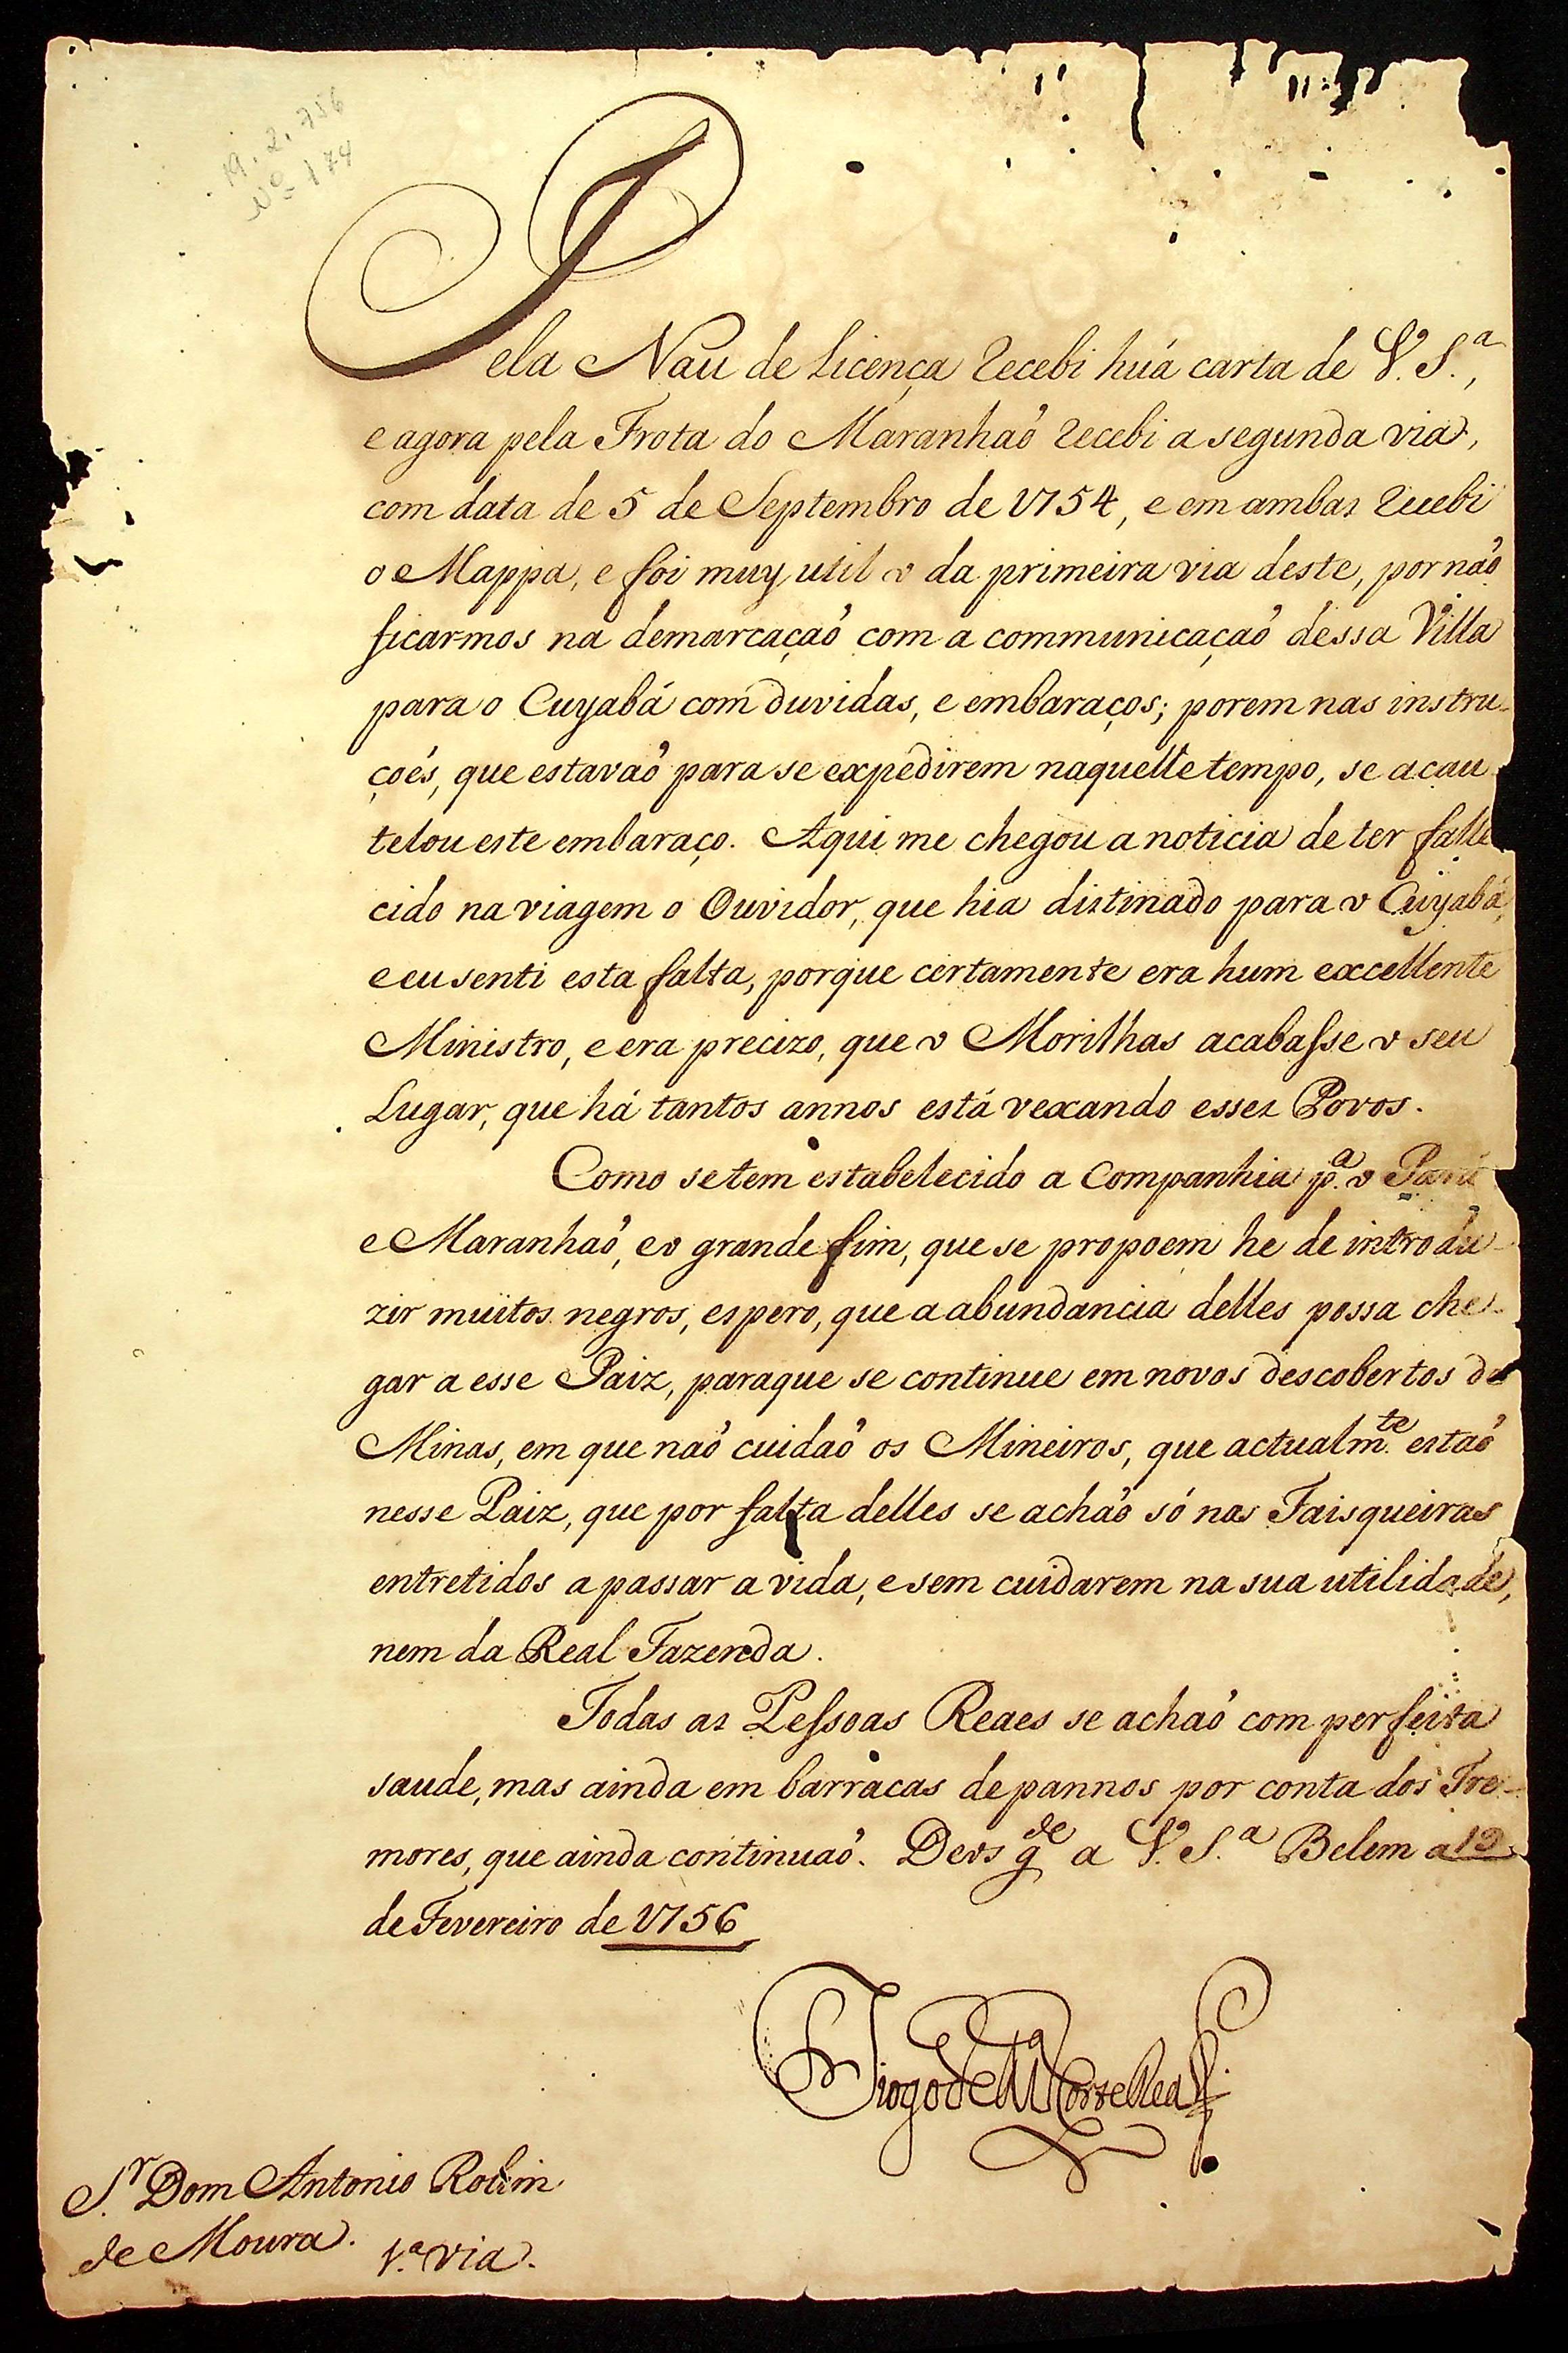 19.2.756
Nº 174
Pela Nau de Licença recebi huá carta de V. S.ª,
e agora pela Frota do Maranhaõ recebi a segunda via,
com data de 5 de Septembro de 1754, e em ambas recebi
o Mappa, e foi muy util o da primeira via deste, por naõ
ficarmos na demarcaçaõ com a communicaçaõ dessa Villa
para o Cuyabá com duvidas, e embaraços; porem nas instru-
çoẽs, que estavaõ para se expedirem naquelle tempo, se acau-
telou este embaraço. Aqui me chegou a noticia de ter falle
cido na viagem o Ouvidor, que hia distinado para o Cuyabá,
e eu senti esta falta, porque certamente era hum excellente
Ministro, e era precizo, que o Morilhas acabasse o seu
Lugar, que há tantos annos está vexando esses Povos.
Como se tem estabelecido a Companhia p.ª o Pará
e Maranhaõ, e o grande fim, que se propoem he de introdu-
zir muitos negros, espero, que a abundancia delles possa che-
gar a esse Paiz, paraque se continue em novos descobertos de
Minas, em que naõ cuidaõ os Mineiros, que actualm.te estaõ
nesse Paiz, que por falta delles se achaõ só nas Faisqueiras
entretidos a passar a vida, e sem cuidarem na sua utilidade,
nem da Real Fazenda.
Todas as Pessoas Reaes se achaõ com perfeita
saude, mas ainda em barracas de pannos por conta dos Tre-
mores, que ainda continuaõ. Deos g.de a V. S.ª Belem a 19
de Fevereiro de 1756
Diogo de M.ça Corte Real
S.r Dom Antonio Rolim
de Moura. 1.ª via.